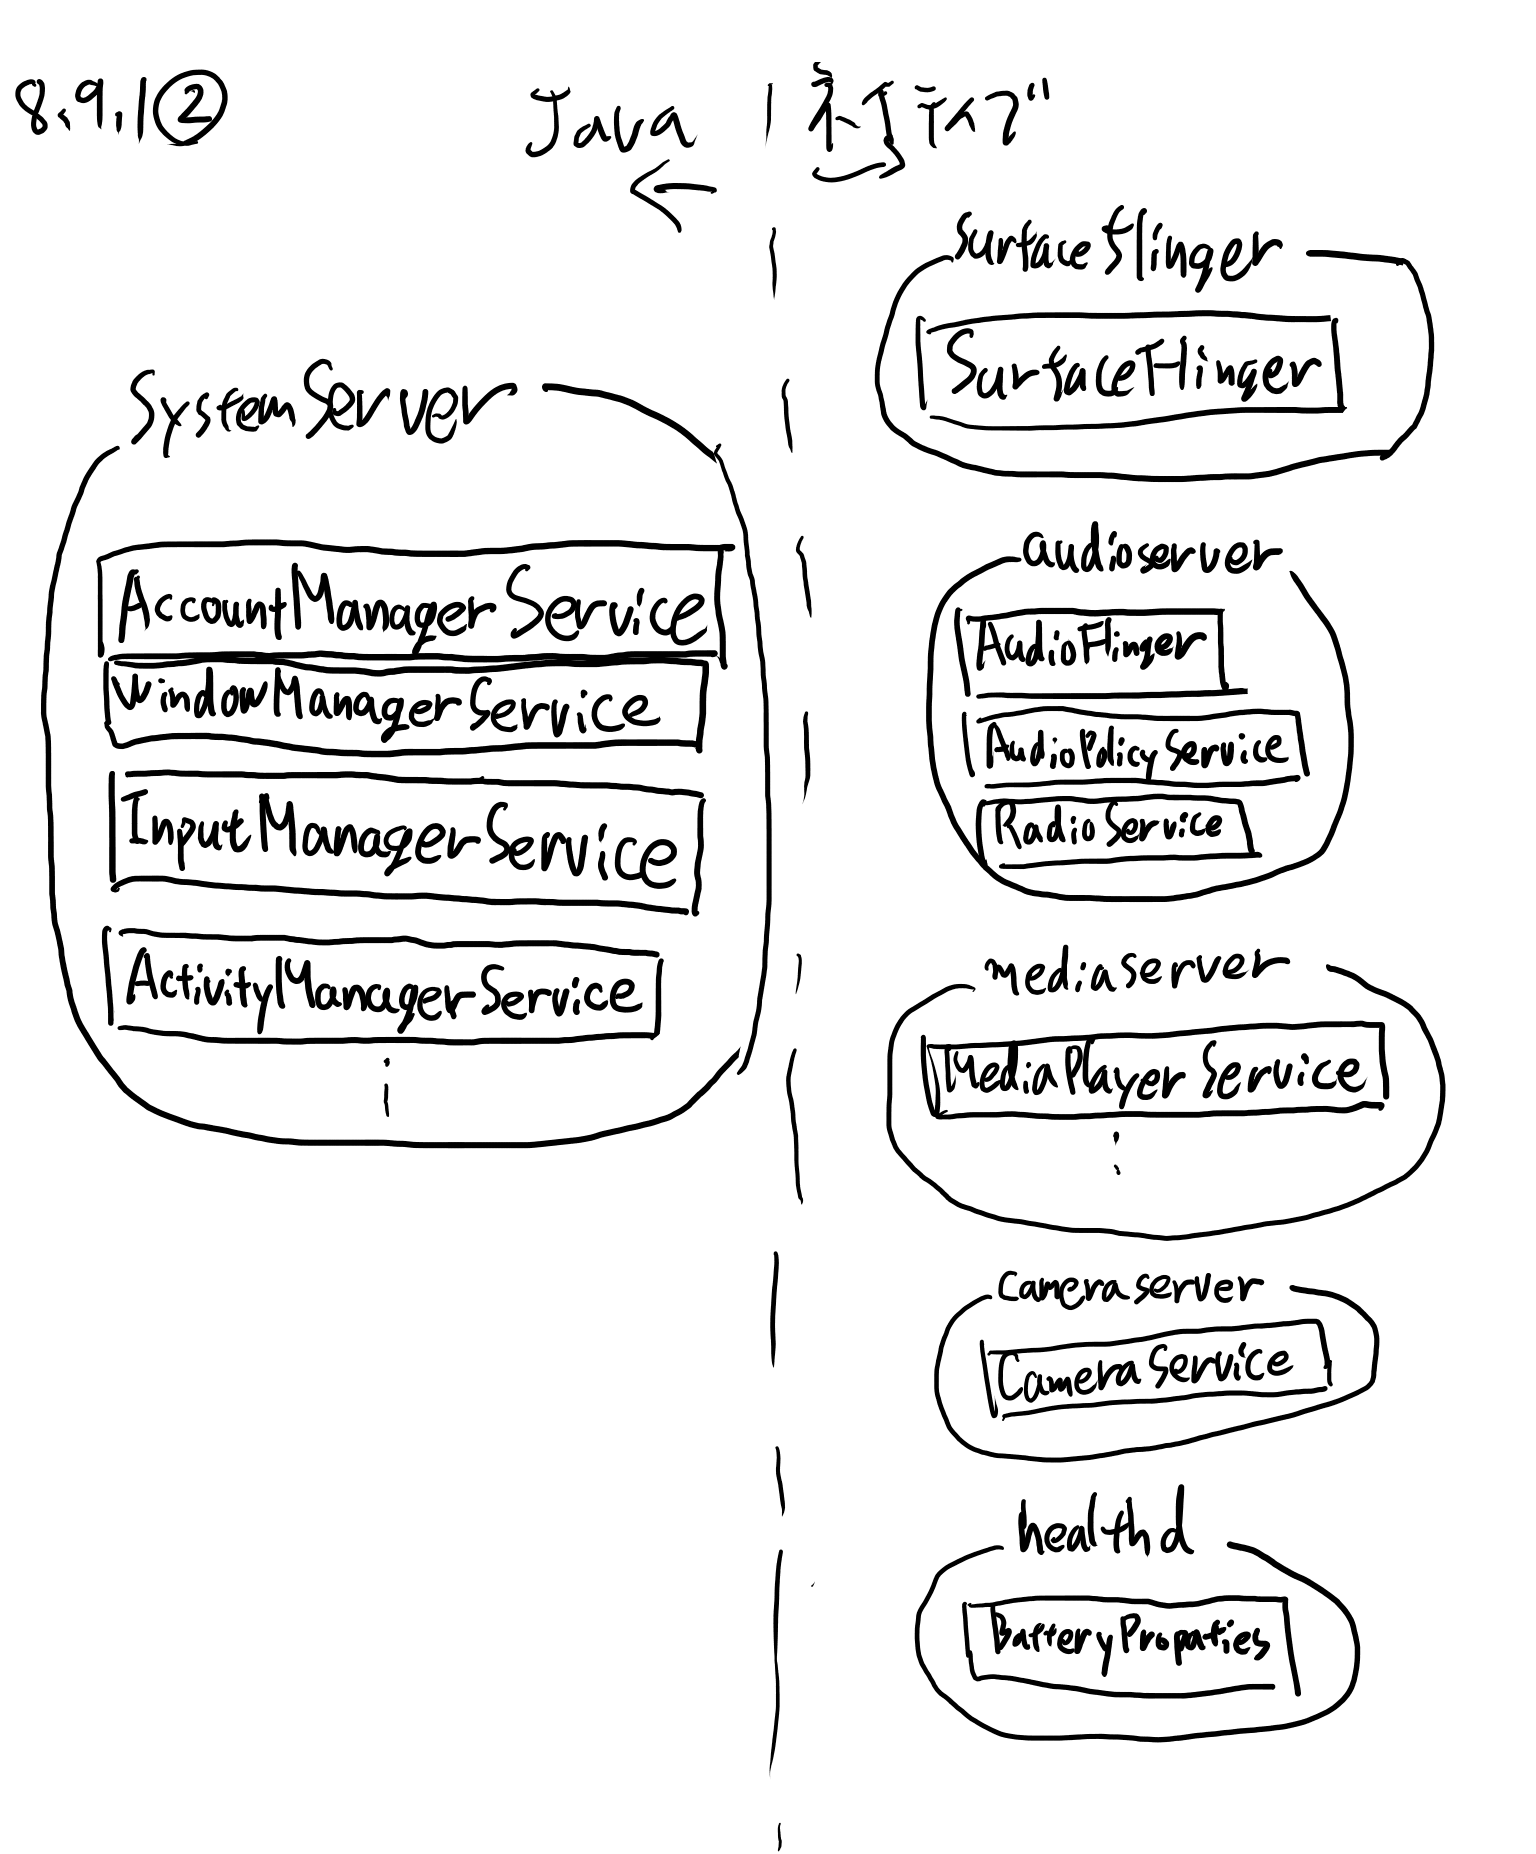 8.9.1②
Java
ネイティブ
SystemServer
AccountManagerService
WindowManagerService
InputManagerService
ActivityManagerService
surfaceflinger
SurfaceFlinger
audioserver
AudioFlinger
AudioPolicyService
RadioService
mediaserver
MediaPlayerService
cameraserver
CameraService
healthd
BatteryPropaties